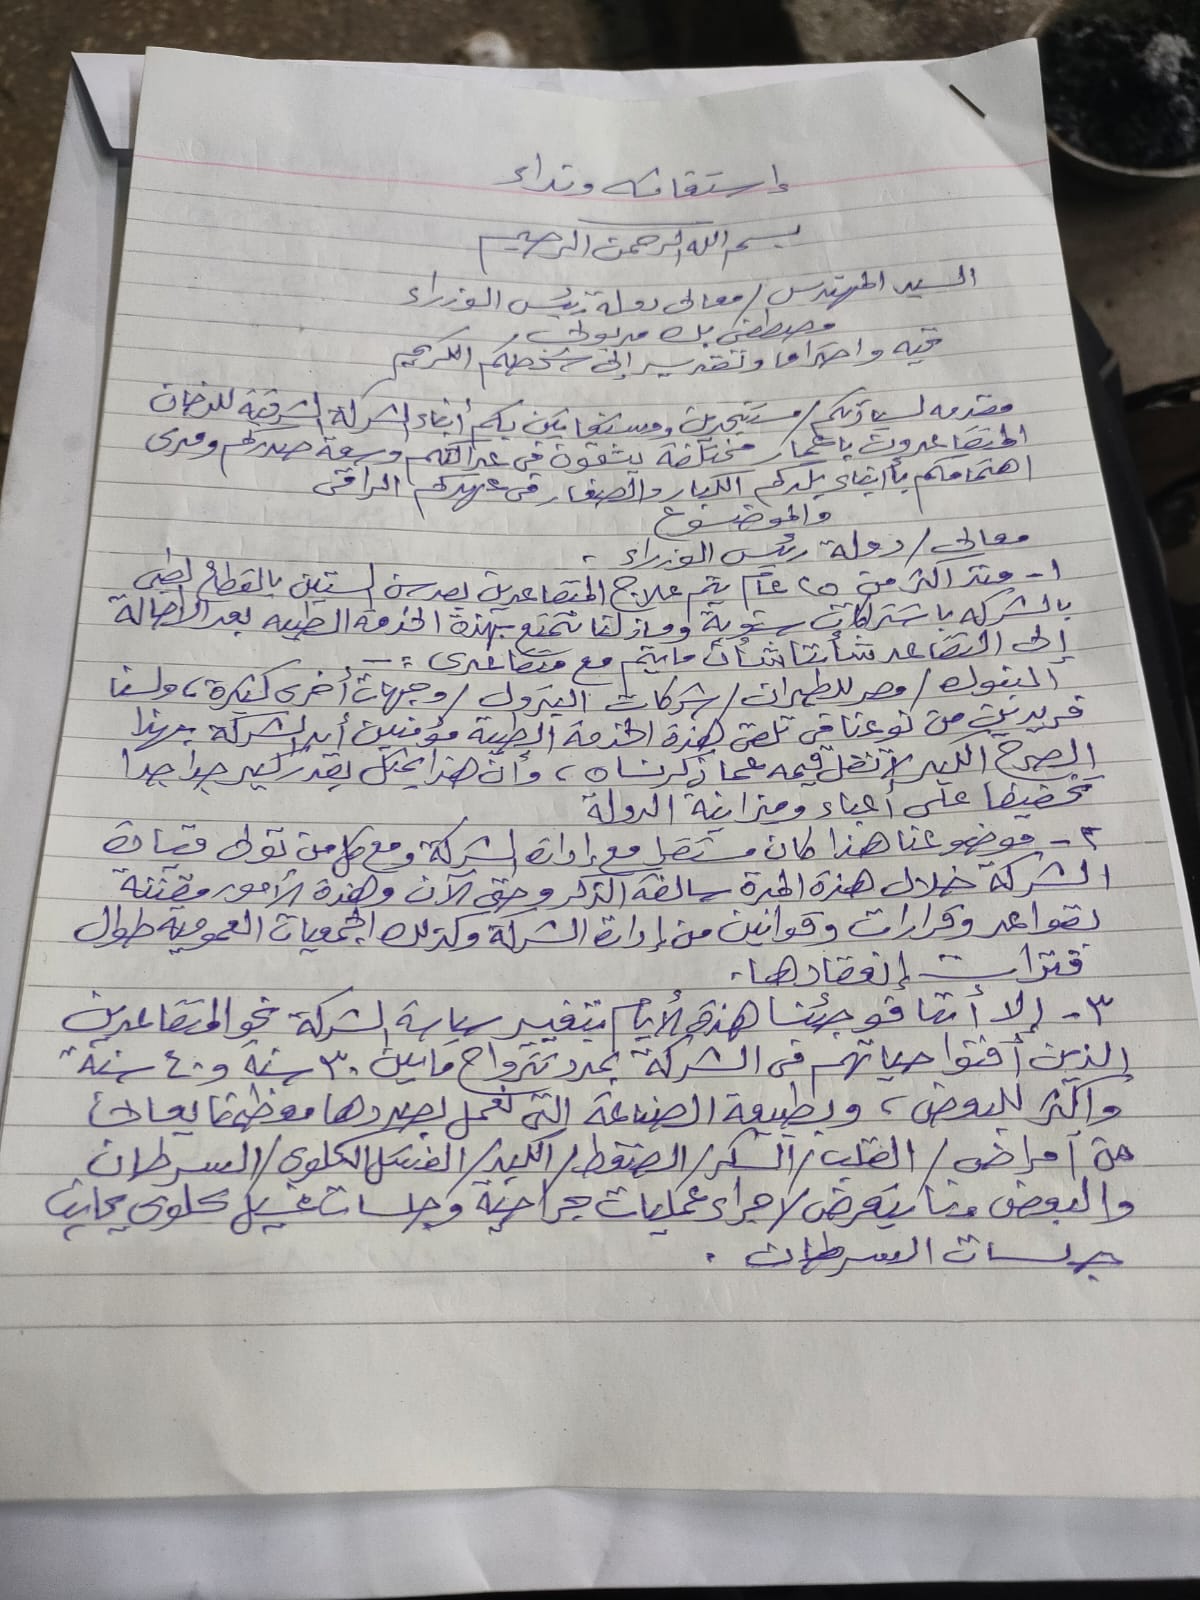 إستغاثه ونداء
بسم الله الرحمن الرحيم
السيد المهندس / معالى دولة رئيس الوزراء
مصطفى بك مدبولى ،
تحيه واحتراما وتقدير إلى شخصكم الكريم
مقدمه لسيادتكم / مستنجدين ومستغاثين بكم أبناء الشركة الشرقية للدخان
المتقاعدون بأعمار مختلفة يثقون فى عدالتكم وسعة صدركم ومدى
اهتمامكم بأبناء بلدكم الكبار والصغار فى عهدكم الراقى
والموضوع
معالى / دولة رئيس الوزراء ،
١- منذ أكثر من ٢٥ عام يتم علاج المتقاعدين بعد سن الستين بالقطاع الطبى
بالشركه باشتراكات سنوية ومازلنا نتمتع بهذة الخدمة الطبيه بعد الإحالة
إلى التقاعد شأننا شأن مايتم مع متقاعدى :-
البنوك / مصر للطيران / شركات البترول / وجهات أخرى كثيرة ، ولسنا
فريدين من نوعنا فى تلقى هذة الخدمة الطبية مؤمنين أن الشركة بهذا
الصرح الكبير لاتقل قيمه عما ذكرناه ، وأن هذا يمثل بقدر كبير جدا جدا
تخفيضا على أعباء وميزانية الدولة
٢- موضوعنا هذا كان مستقر مع إدارة الشركة ومع كل من تولى قيادة
الشركة خلال هذة المدة سالفة الذكر وحتى الآن وهذة الأمور مقننة
بقواعد وقرارات وقوانين من إدارة الشركة وكذلك الجمعيات العمومية طوال
فترات إنعقادها .
٣- إلا أننا فوجئنا هذة الأيام بتغيير سياسة الشركة نحو المتقاعدين
الذين أفنوا حياتهم فى الشركة بمدد تتراوح مابين ٣٠ سنة و ٤٠ سنة
وأكثر للبعض ، وبطبيعة الصناعة التى نعمل بصددها معظمنا يعانى
من أمراض / القلب / السكر / الضغط / الكبد / الفشل الكلوى / السرطان
والبعض منا يتعرض لإجراء عمليات جراحية وجلسات غسيل كلوى بجانب
جلسات السرطان .